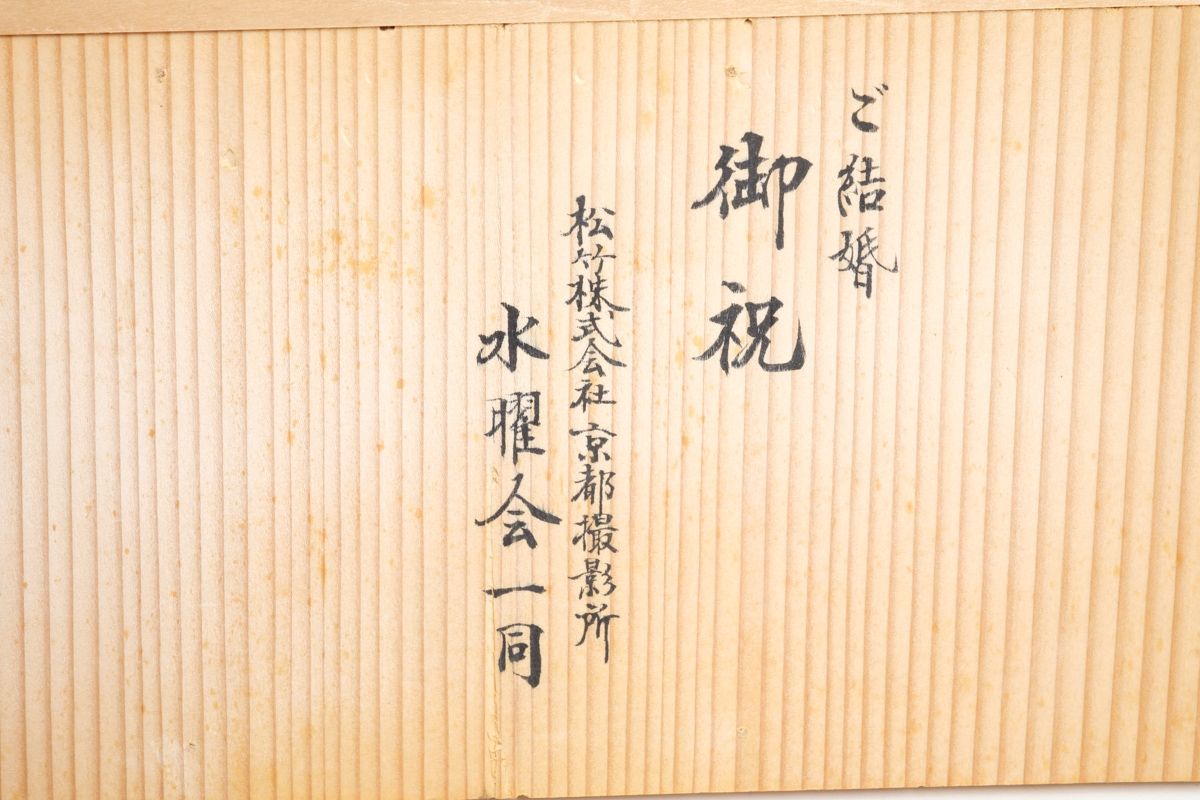 ご結婚
御祝
松竹株式会社京都撮影所
水曜会一同